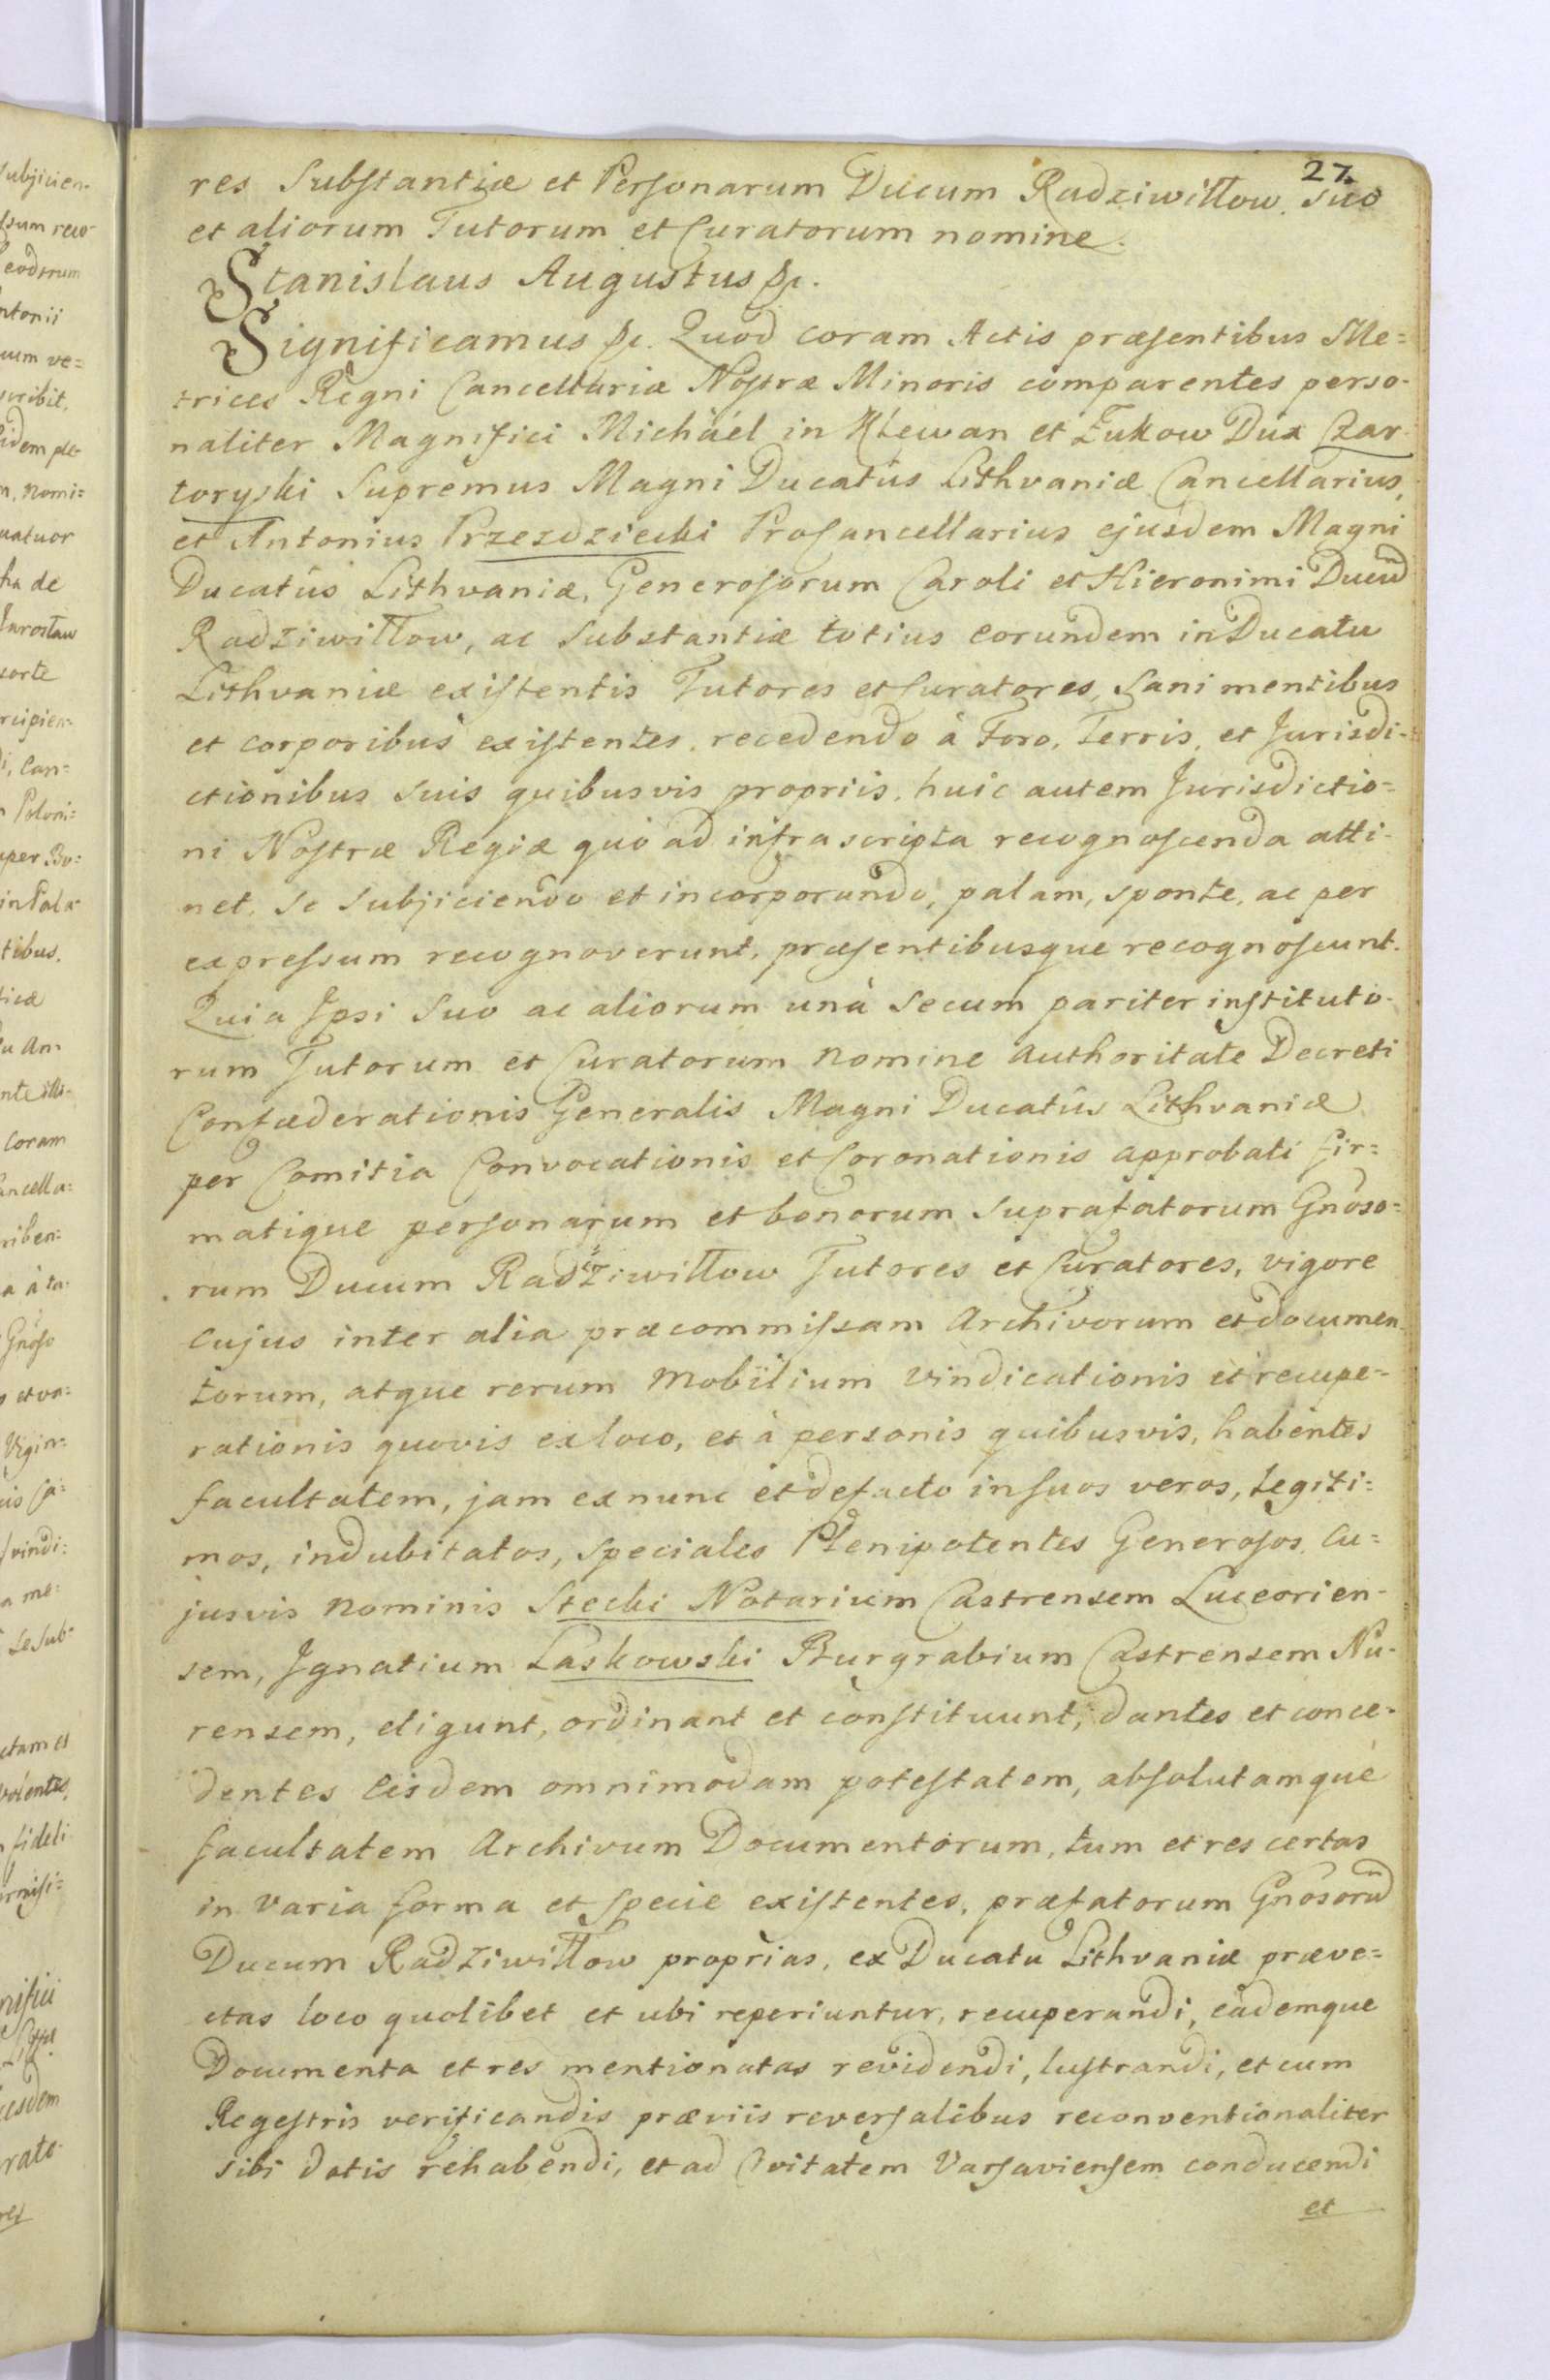 27.
res Substantiæ et Personarum Ducum Radziwiłłow. suo
et aliorum Tutorum et Curatorum nomine.
Stanislaus Augustus &c.
Significamus &c. Quod coram Actis præsentibus Me=
trices Regni Cancellariæ Nostræ Minoris comparentes perso-
naliter Magnifici Michäel in Klewan et Żukow Dux Czar
toryski Supremus Magni Ducatûs Lithvaniæ Cancellarius,
et Antonius Przezdziecki ProCancellarius ejusdem Magni
Ducatûs Lithvaniæ, Generosorum Caroli et Hieronimi Ducũ
Radziwiłłow, ac Substantiæ totius eorundem in Ducatu
Lithvaniæ existentis Tutores et Curatores, Sani mentibus
et corporibus existentes, recedendo à Foro, Terris, et Jurisdi-
ctionibus suis quibusvis propriis, huic autem Jurisdictio=
ni Nostræ Regiæ quò ad infra scripta recognoscenda atti-
net, se subjiciendo et incorporando, palam, sponte, ac per
expressum recognoverunt, præsentibusque recognoscunt.
Quia Ipsi Suo ac aliorum unà secum pariter instituto-
rum Tutorum et Curatorum nomine authoritate Decreti
Confæderationis Generalis Magni Ducatûs Lithvaniæ
per Comitia Convocationis et Coronationis approbati fir=
matique personarum et bonorum suprafatorum Gnõso=
rum Ducum Radziwiłłow Tutores et Curatores, vigore
cujus inter alia præcommissam Archivorum et documen
torum, atque rerum mobilium vindicationis et recupe-
rationis quovis ex loco, et à personis quibusvis, habentes
facultatem, jam ex nunc et de facto in suos veros, legiti=
mos, indubitatos, speciales Plenipotentes Generosos Cu=
jusvis nominis Stecki Notarium Castrensem Luceorien-
sem, Ignatium Laskowski Burgrabium Castrensem Nu-
rensem, eligunt, ordinant et constituunt, dantes et conce-
dentes eisdem omnimodam potestatem, absolutamque
facultatem Archivum Documentorum, tum et res certas
in varia forma et specie existentes, præfatorum Gnõsorũ
Ducum Radziwiłłow proprias, ex Ducatu Lithvaniæ præve=
ctas loco quolibet et ubi reperiuntur, recuperandi, eademque
Documenta et res mentionatas revidendi, lustrandi, et cum
Regestris verificandis præviis reversalibus reconventionaliter
sibi datis rehabendi, et ad Civitatem Varsaviensem conducendi
et